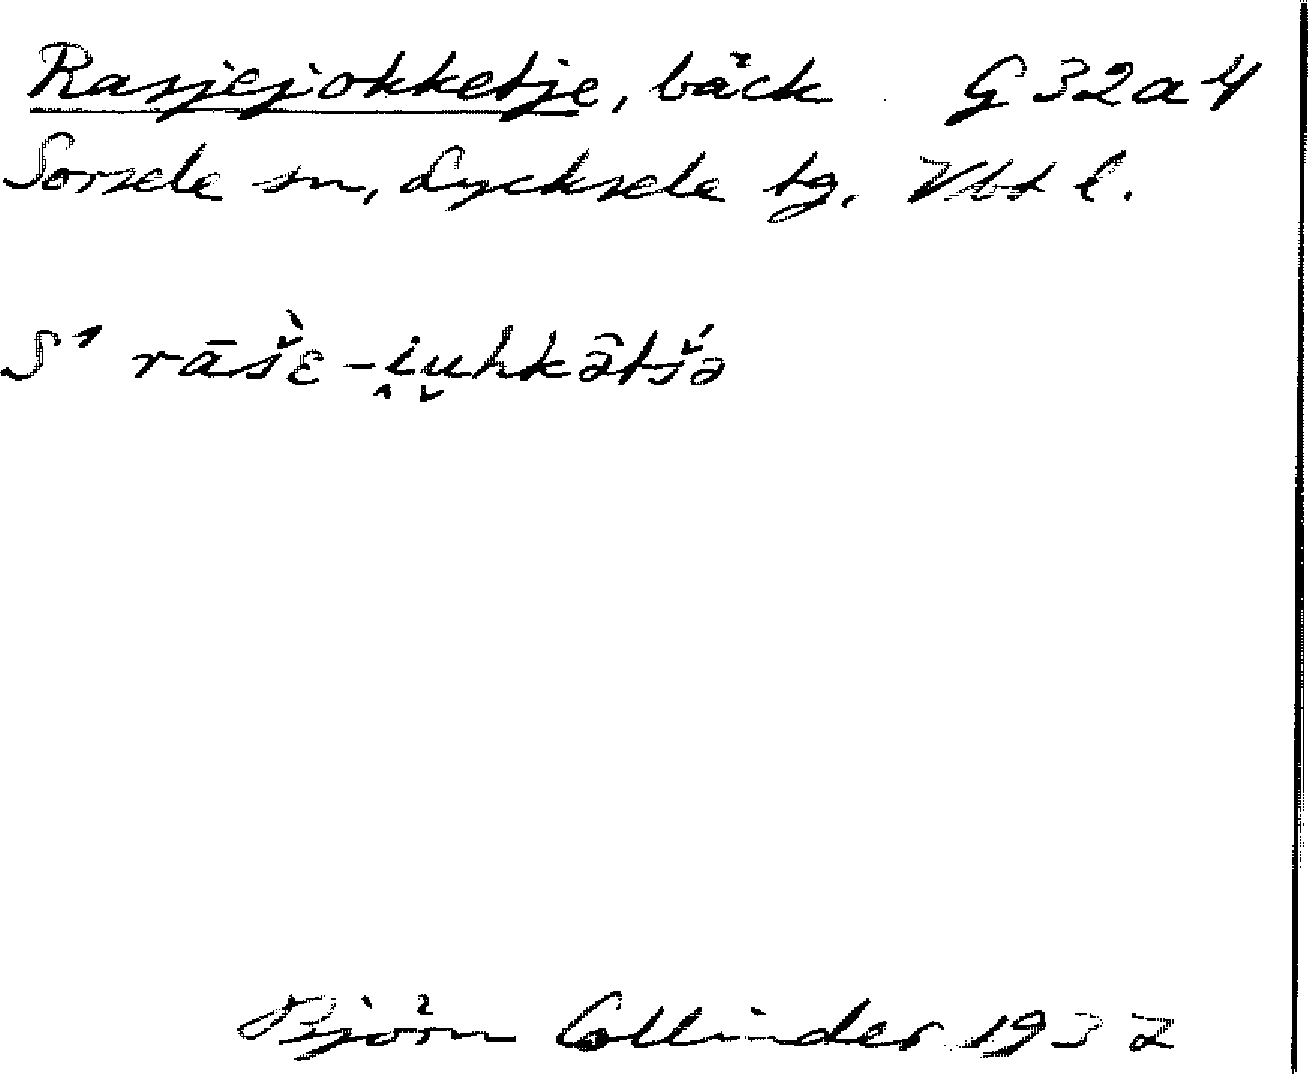 Rasjejokketje, bäck G32a4
Sorsele sn, Lycksele tg. Vbt l.
S¹ rāš̀ɛ-i̭u̯hkə̄tš́ə
Björn Collinder 1937